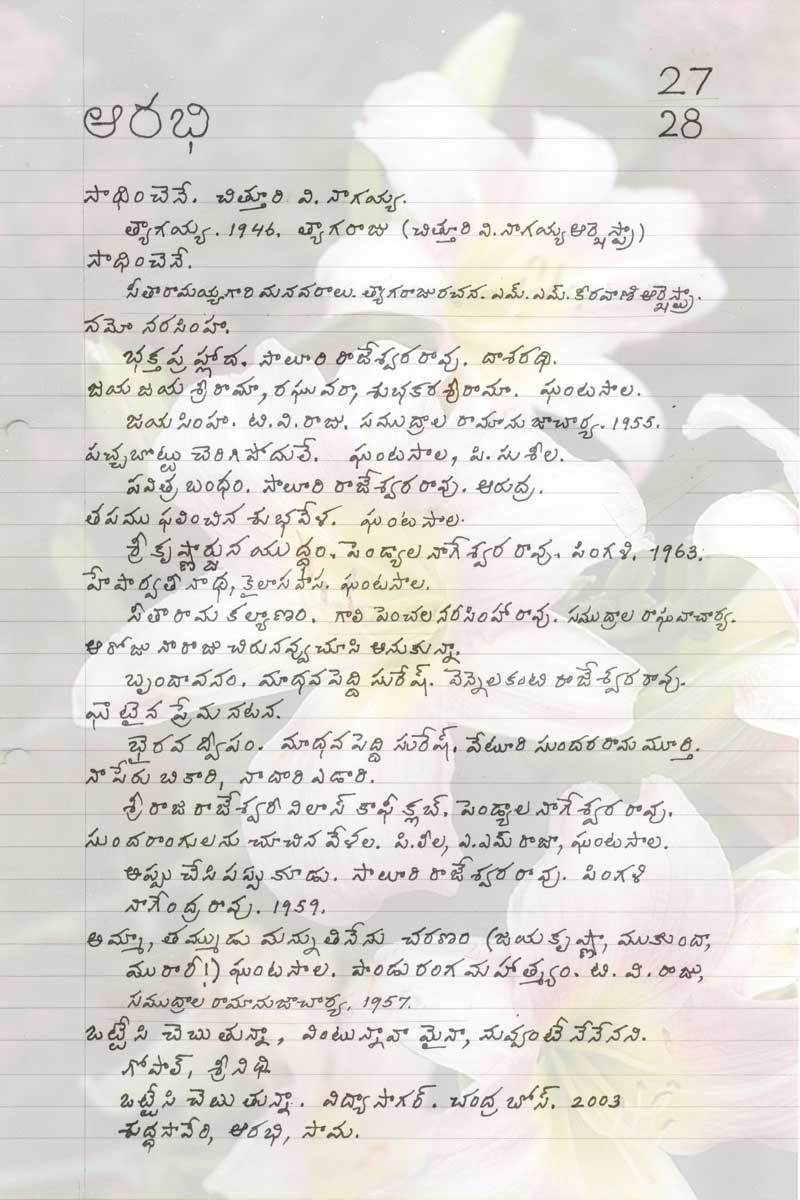 27
ఆరభి
28
సాధించెనే. చిత్తూరి వి. నాగయ్య.
త్యాగయ్య. 1946. త్యాగరాజు (చిత్తూరి వి. నాగయ్య ఆర్కెస్ట్రా)
సాధించెనే.
సీతారామయ్యగారి మనవరాలు. త్యాగరాజు రచన. ఎమ్. ఎమ్. కీరవాణి ఆర్కెస్ట్రా.
నమో నరసింహా.
భక్త ప్రహ్లాద. సాలూరి రాజేశ్వర రావు. దాశరథి.
జయ జయ శ్రీరామా, రఘువరా, శుభకర శ్రీరామా. ఘంటసాల.
జయసింహా. టి. వి. రాజు. సముద్రాల రామానుజాచార్య. 1955.
పచ్చబొట్టు చెరిగిపోదులే. ఘంటసాల, పి. సుశీల.
పవిత్ర బంధం. సాలూరి రాజేశ్వర రావు. ఆరుద్ర.
తపము ఫలించిన శుభవేళ. ఘంటసాల.
శ్రీ కృష్ణార్జున యుద్ధం. పెండ్యాల నాగేశ్వర రావు. పింగళి. 1963.
హే పార్వతీ నాథ, కైలాస వాస. ఘంటసాల.
సీతారామ కల్యాణం. గాలి పెంచల నరసింహారావు. సముద్రాల రాఘవాచార్య.
ఆ రోజు నా రాజు చిరునవ్వు చూసి అనుకున్నా.
బృందావనం. మాధవపెద్ది సురేష్. వెన్నెలకంటి రాజేశ్వర రావు.
ఘాటైన ప్రేమ నటన.
భైరవ ద్వీపం. మాధవపెద్ది సురేష్. వేటూరి సుందర రామ మూర్తి.
నా పేరు బికారి, నా దారి ఎడారి.
శ్రీ రాజ రాజేశ్వరీ విలాస్ కాఫీ క్లబ్. పెండ్యాల నాగేశ్వర రావు.
సుందరాంగులను చూచిన వేళల. పి. లీల, ఎ. ఎమ్ రాజా, ఘంటసాల.
అప్పు చేసి పప్పు కూడు. సాలూరి రాజేశ్వర రావు. పింగళి
నాగేంద్ర రావు. 1959.
అమ్మా, తమ్ముడు మన్ను తినేను చరణం (జయ కృష్ణా, ముకుందా,
మురారీ!) ఘంటసాల. పాండురంగ మహాత్మ్యం. టి. వి. రాజు,
సముద్రాల రామానుజాచార్య. 1957.
ఒట్టేసి చెబుతున్నా, వింటున్నావా మైనా, నువ్వంటే నేనేనని.
గోపాల్, శ్రీనిధి.
ఒట్టేసి చెబుతున్నా. విద్యాసాగర్. చంద్రబోస్. 2003
శుద్ధసావేరి, ఆరభి, సామ.